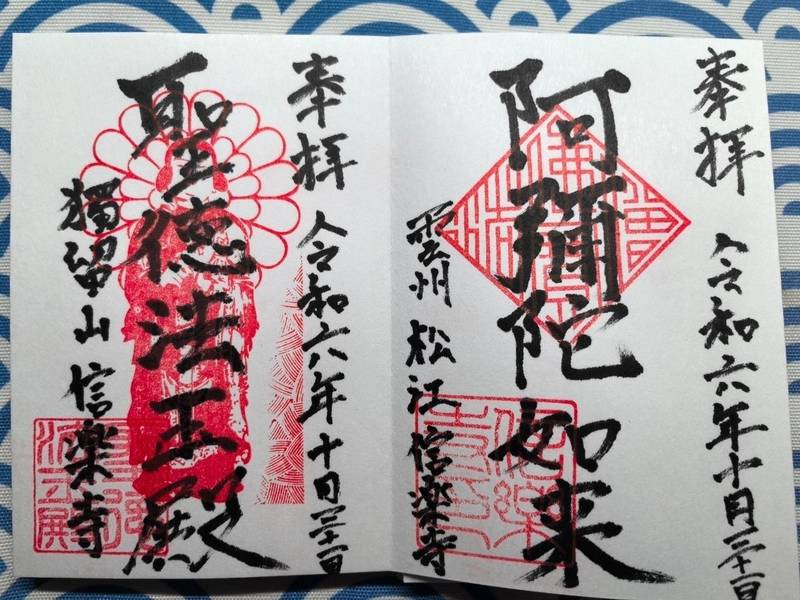 奉拝 令和六年十月
阿彌陀如来
雲州 松江 信楽寺
奉拝 令和六年十月
聖徳法王殿
獨留山 信楽寺